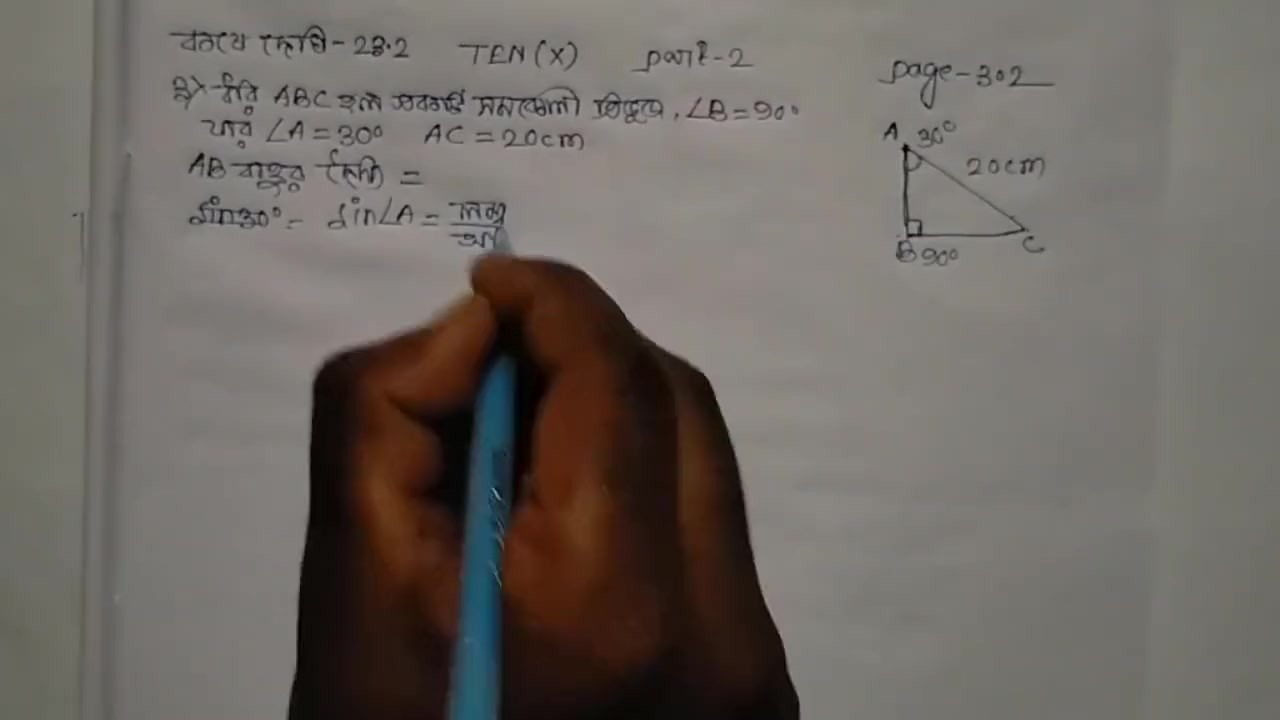 কষে দেখি-23.2 TEN(X) part-2
page-302
2) ধরি ABC হল একটি সমকোণী ত্রিভুজ, ∠B=90°
∠A=30° AC=20cm
AB বাহুর দৈর্ঘ্য =
sin30°= sin∠A = লম্ব
অতি
A 30°
20cm
B 90°
C